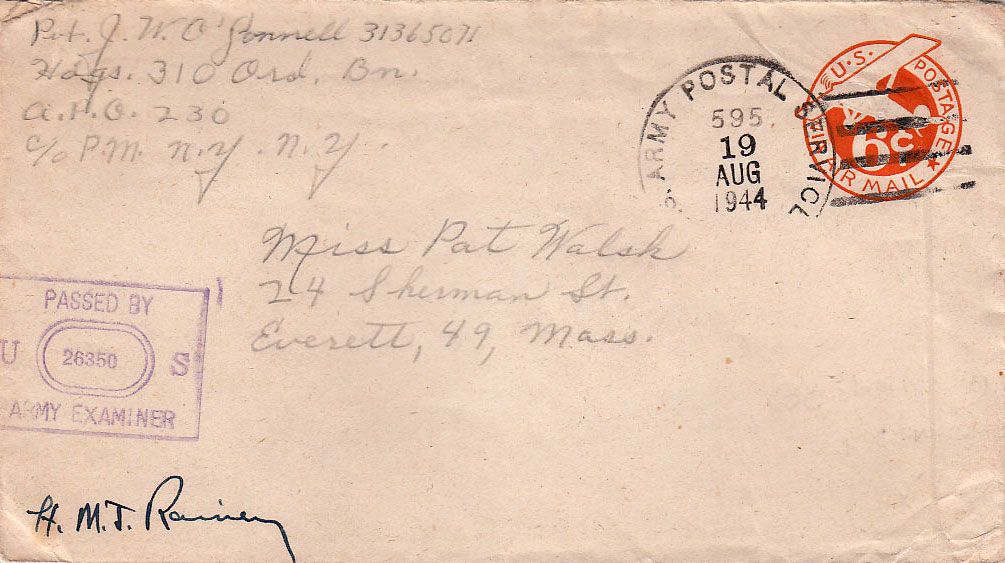 Pvt. J. W. O'Donnell 31365071
Hdqs. 310 Ord. Bn.
A.P.O. 230
c/o P.M. N.Y. N.Y.
ARMY POSTAL SERVICE
595
19
AUG
1944
U.S. POSTAGE
6¢
AIR MAIL
Miss Pat Walsh
24 Sherman St.
Everett, 49, Mass.
PASSED BY
U 26350 S
ARMY EXAMINER
H. M. J. Rainey